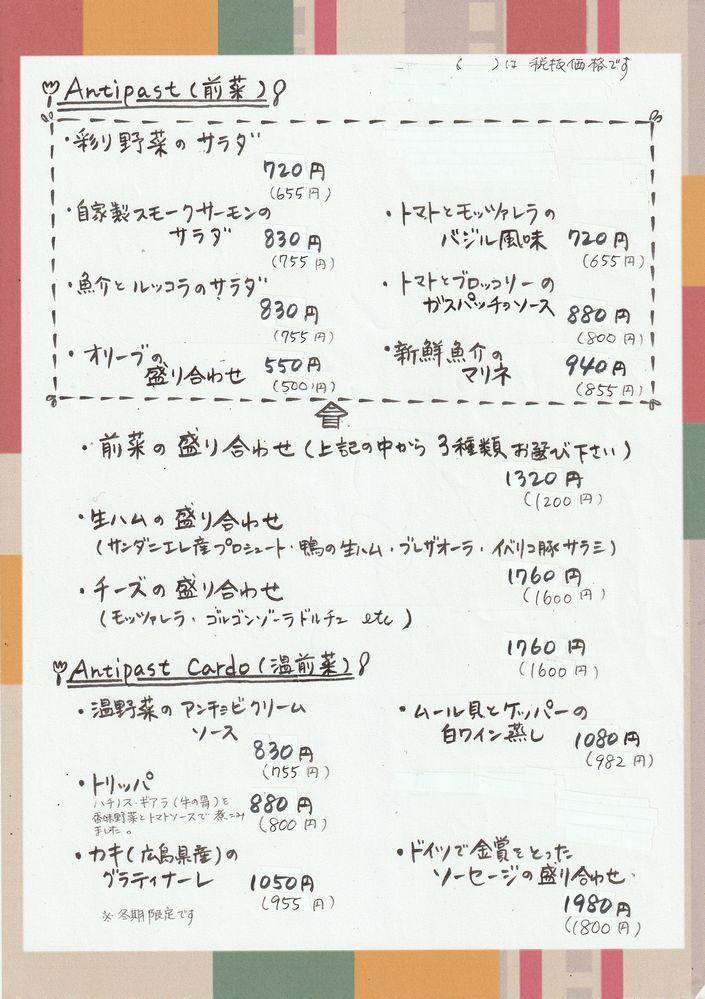 ( )は 税抜価格です
Antipast(前菜)
・彩り野菜の サラダ
720円
(655円)
・自家製スモークサーモンの
サラダ 830円
(755円)
・魚介と ルッコラのサラダ
830円
(755円)
・オリーブの
盛り合わせ 550円
(500円)
・トマトとモッツァレラの
バジル風味 720円
(655円)
・トマトとブロッコリーの
ガスパッチョソース 880円
(800円)
・新鮮魚介の
マリネ 940円
(855円)
・前菜の 盛り合わせ (上記の中から 3種類 お選び下さい)
1320円
(1200円)
・生ハムの 盛り合わせ
(サンダニエレ産プロシュート・鴨の生ハム・ブレザオーラ・イベリコ豚サラミ)
1760円
(1600円)
・チーズの 盛り合わせ
(モッツァレラ・ゴルゴンゾーラドルチェ etc)
1760円
(1600円)
Antipast Cardo(温前菜)
・温野菜の アンチョビクリーム
ソース
830円
(755円)
・トリッパ
ハチノス・ギアラ(牛の胃)を
香味野菜とトマトソースで 煮こみ
ました。
880円
(800円)
・カキ(広島県産)の
グラティナーレ 1050円
(955円)
※冬期限定です
・ムール貝とケッパーの
白ワイン蒸し 1080円
(982円)
・ドイツで金賞をとった
ソーセージの盛り合わせ
1980円
(1800円)